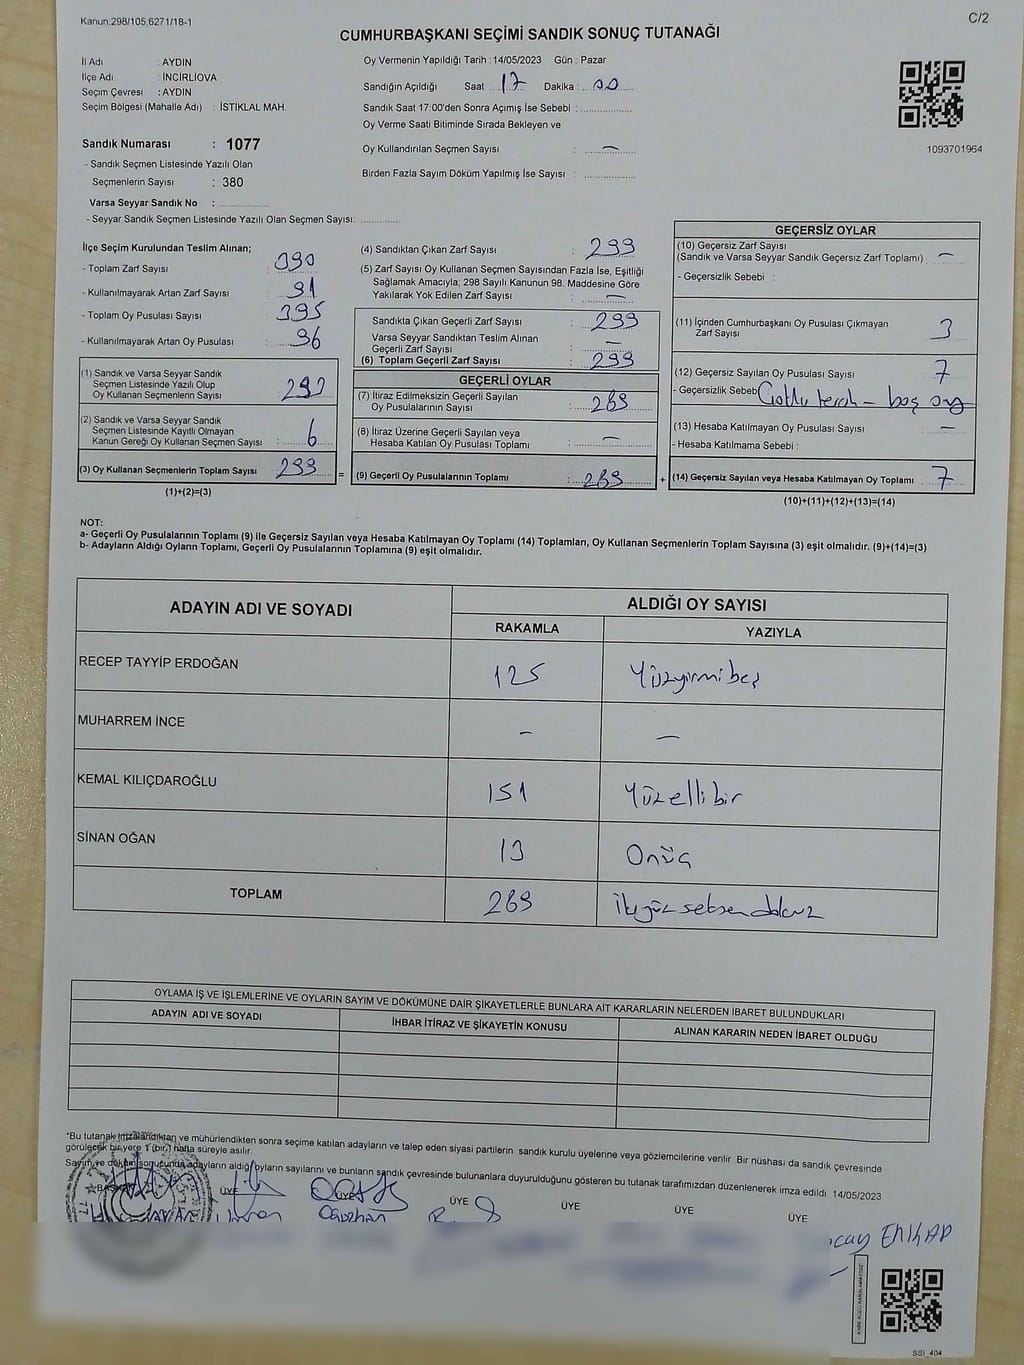 Kanun;298/105,6271/18-1
C/2
CUMHURBAŞKANI SEÇİMİ SANDIK SONUÇ TUTANAĞI
İl Adı : AYDIN
İlçe Adı : İNCİRLİOVA
Seçim Çevresi : AYDIN
Seçim Bölgesi (Mahalle Adı) : İSTİKLAL MAH.
Sandık Numarası : 1077
- Sandık Seçmen Listesinde Yazılı Olan
Seçmenlerin Sayısı : 380
Varsa Seyyar Sandık No :
- Seyyar Sandık Seçmen Listesinde Yazılı Olan Seçmen Sayısı:
Oy Vermenin Yapıldığı Tarih : 14/05/2023 Gün : Pazar
Sandığın Açıldığı Saat 17 Dakika : 00
Sandık Saat 17:00'den Sonra Açımış İse Sebebi :
Oy Verme Saati Bitiminde Sırada Bekleyen ve
Oy Kullandırılan Seçmen Sayısı : —
Birden Fazla Sayım Döküm Yapılmış İse Sayısı :
1093701964
İlçe Seçim Kurulundan Teslim Alınan;
- Toplam Zarf Sayısı : 390
- Kullanılmayarak Artan Zarf Sayısı : 91
- Toplam Oy Pusulası Sayısı : 395
- Kullanılmayarak Artan Oy Pusulası : 96
(1) Sandık ve Varsa Seyyar Sandık
Seçmen Listesinde Yazılı Olup
Oy Kullanan Seçmenlerin Sayısı :
(2) Sandık ve Varsa Seyyar Sandık
Seçmen Listesinde Kayıtlı Olmayan
Kanun Gereği Oy Kullanan Seçmen Sayısı : 6
(3) Oy Kullanan Seçmenlerin Toplam Sayısı 299 =
(1)+(2)=(3)
(4) Sandıktan Çıkan Zarf Sayısı : 299
(5) Zarf Sayısı Oy Kullanan Seçmen Sayısından Fazla İse, Eşitliği
Sağlamak Amacıyla; 298 Sayılı Kanunun 98. Maddesine Göre
Yakılarak Yok Edilen Zarf Sayısı : —
Sandıkta Çıkan Geçerli Zarf Sayısı : 299
Varsa Seyyar Sandıktan Teslim Alınan
Geçerli Zarf Sayısı : —
(6) Toplam Geçerli Zarf Sayısı : 299
GEÇERLİ OYLAR
(7) İtiraz Edilmeksizin Geçerli Sayılan
Oy Pusulalarının Sayısı : 289
(8) İtiraz Üzerine Geçerli Sayılan veya
Hesaba Katılan Oy Pusulası Toplamı : —
(9) Geçerli Oy Pusulalarının Toplamı : 289 +
GEÇERSİZ OYLAR
(10) Geçersiz Zarf Sayısı
(Sandık ve Varsa Seyyar Sandık Geçersiz Zarf Toplamı) : —
- Geçersizlik Sebebi :
(11) İçinden Cumhurbaşkanı Oy Pusulası Çıkmayan
Zarf Sayısı : 3
(12) Geçersiz Sayılan Oy Pusulası Sayısı : 7
- Geçersizlik Sebebi boş oy
(13) Hesaba Katılmayan Oy Pusulası Sayısı : —
- Hesaba Katılmama Sebebi :
(14) Geçersiz Sayılan veya Hesaba Katılmayan Oy Toplamı : 7
(10)+(11)+(12)+(13)=(14)
NOT:
a- Geçerli Oy Pusulalarının Toplamı (9) ile Geçersiz Sayılan veya Hesaba Katılmayan Oy Toplamı (14) Toplamları, Oy Kullanan Seçmenlerin Toplam Sayısına (3) eşit olmalıdır. (9)+(14)=(3)
b- Adayların Aldığı Oyların Toplamı, Geçerli Oy Pusulalarının Toplamına (9) eşit olmalıdır.
ADAYIN ADI VE SOYADI
ALDIĞI OY SAYISI
RAKAMLA YAZIYLA
RECEP TAYYİP ERDOĞAN 125 Yüzyirmibeş
MUHARREM İNCE - —
KEMAL KILIÇDAROĞLU 151 Yüzellibir
SİNAN OĞAN 13 Onüç
TOPLAM 289 İkiyüz seksen dokuz
OYLAMA İŞ VE İŞLEMLERİNE VE OYLARIN SAYIM VE DÖKÜMÜNE DAİR ŞİKAYETLERLE BUNLARA AİT KARARLARIN NELERDEN İBARET BULUNDUKLARI
ADAYIN ADI VE SOYADI İHBAR İTİRAZ VE ŞİKAYETİN KONUSU ALINAN KARARIN NEDEN İBARET OLDUĞU
*Bu tutanak İmzalandıktan ve mühürlendikten sonra seçime katılan adayların ve talep eden siyasi partilerin sandık kurulu üyelerine veya gözlemcilerine verilir. Bir nüshası da sandık çevresinde
görülecek bir yere 1 (bir) hafta süreyle asılır.
Sayım ve döküm sonucunda adayların aldığı oyların sayılarını ve bunların sandık çevresinde bulunanlara duyurulduğunu gösteren bu tutanak tarafımızdan düzenlenerek imza edildi. 14/05/2023
ÜYE ÜYE ÜYE ÜYE ÜYE ÜYE
Oğuzhan
SSİ_404